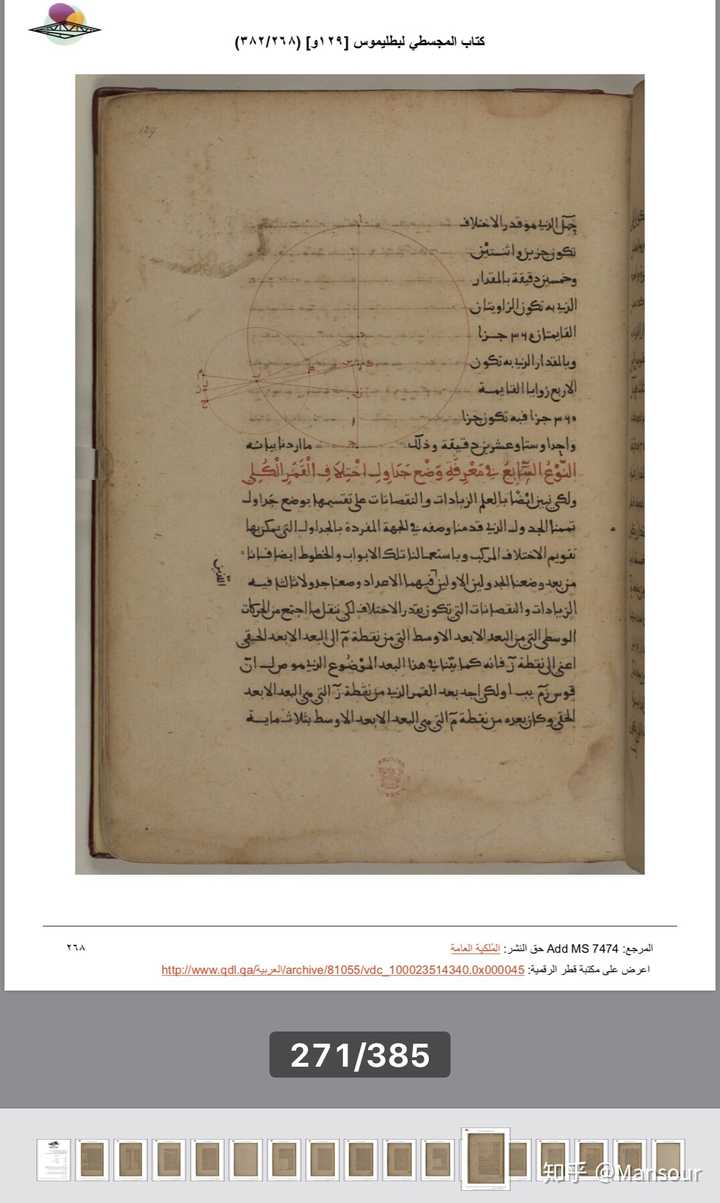 كتاب المجسطي لبطليموس [١٢٩و] (٣٨٢/٢٦٨)
129
جهل الذي هو قدر الاختلاف
تكون جزين واثنتين
وخمسين دقيقة بالمقدار
الذي به تكون الزاويتان
القايمتان ٣٦٠ جزا
وبالمقدار الذي به تكون
الاربع زوايا القايمة
٣٦٠ جزا فبه تكون جزا
واحدا وستا وعشرين دقيقة وذلك ما اردنا بيانه
النوع السابع في معرفة وضع جداول اختلاف القمر الكلي
ولكي نبين ايضا بالعلم الزيادات والنقصانات على تقسيمها بوضع جداول
تممنا الجدول الذي قدمنا وصفه في الجهة المفردة بالجداول التي يمكن بها
تقويم الاختلاف المركب وباستعمالنا تلك الابواب والخطوط ايضا فانا
من بعد وضعنا الجدولين الاولين فيهما الاعداد وضعنا جدولا ثالثا فيه
اللذين
الزيادات والنقصانات التي تكون بقدر الاختلاف لكي ننقل ما اجتمع من الحركات
الوسطى التي من البعد الابعد الاوسط التي من نقطة م الى البعد الابعد الحقيقي
اعني الى نقطة ز فانه كما بينا في هذا البعد الموضوع الذي هو ص ل ان
قوس زم يب ا ولكن اجد بعد القمر الذي من نقطة ز التي هي البعد الابعد
الحقي وكان بعده من نقطة م التي هي البعد الابعد الاوسط بثلاث ماية
المرجع: Add MS 7474 حق النشر: الملكية العامة
٢٦٨
اعرض على مكتبة قطر الرقمية: http://www.qdl.qa/العربية/archive/81055/vdc_100023514340.0x000045
271/385
知乎 @Mansour